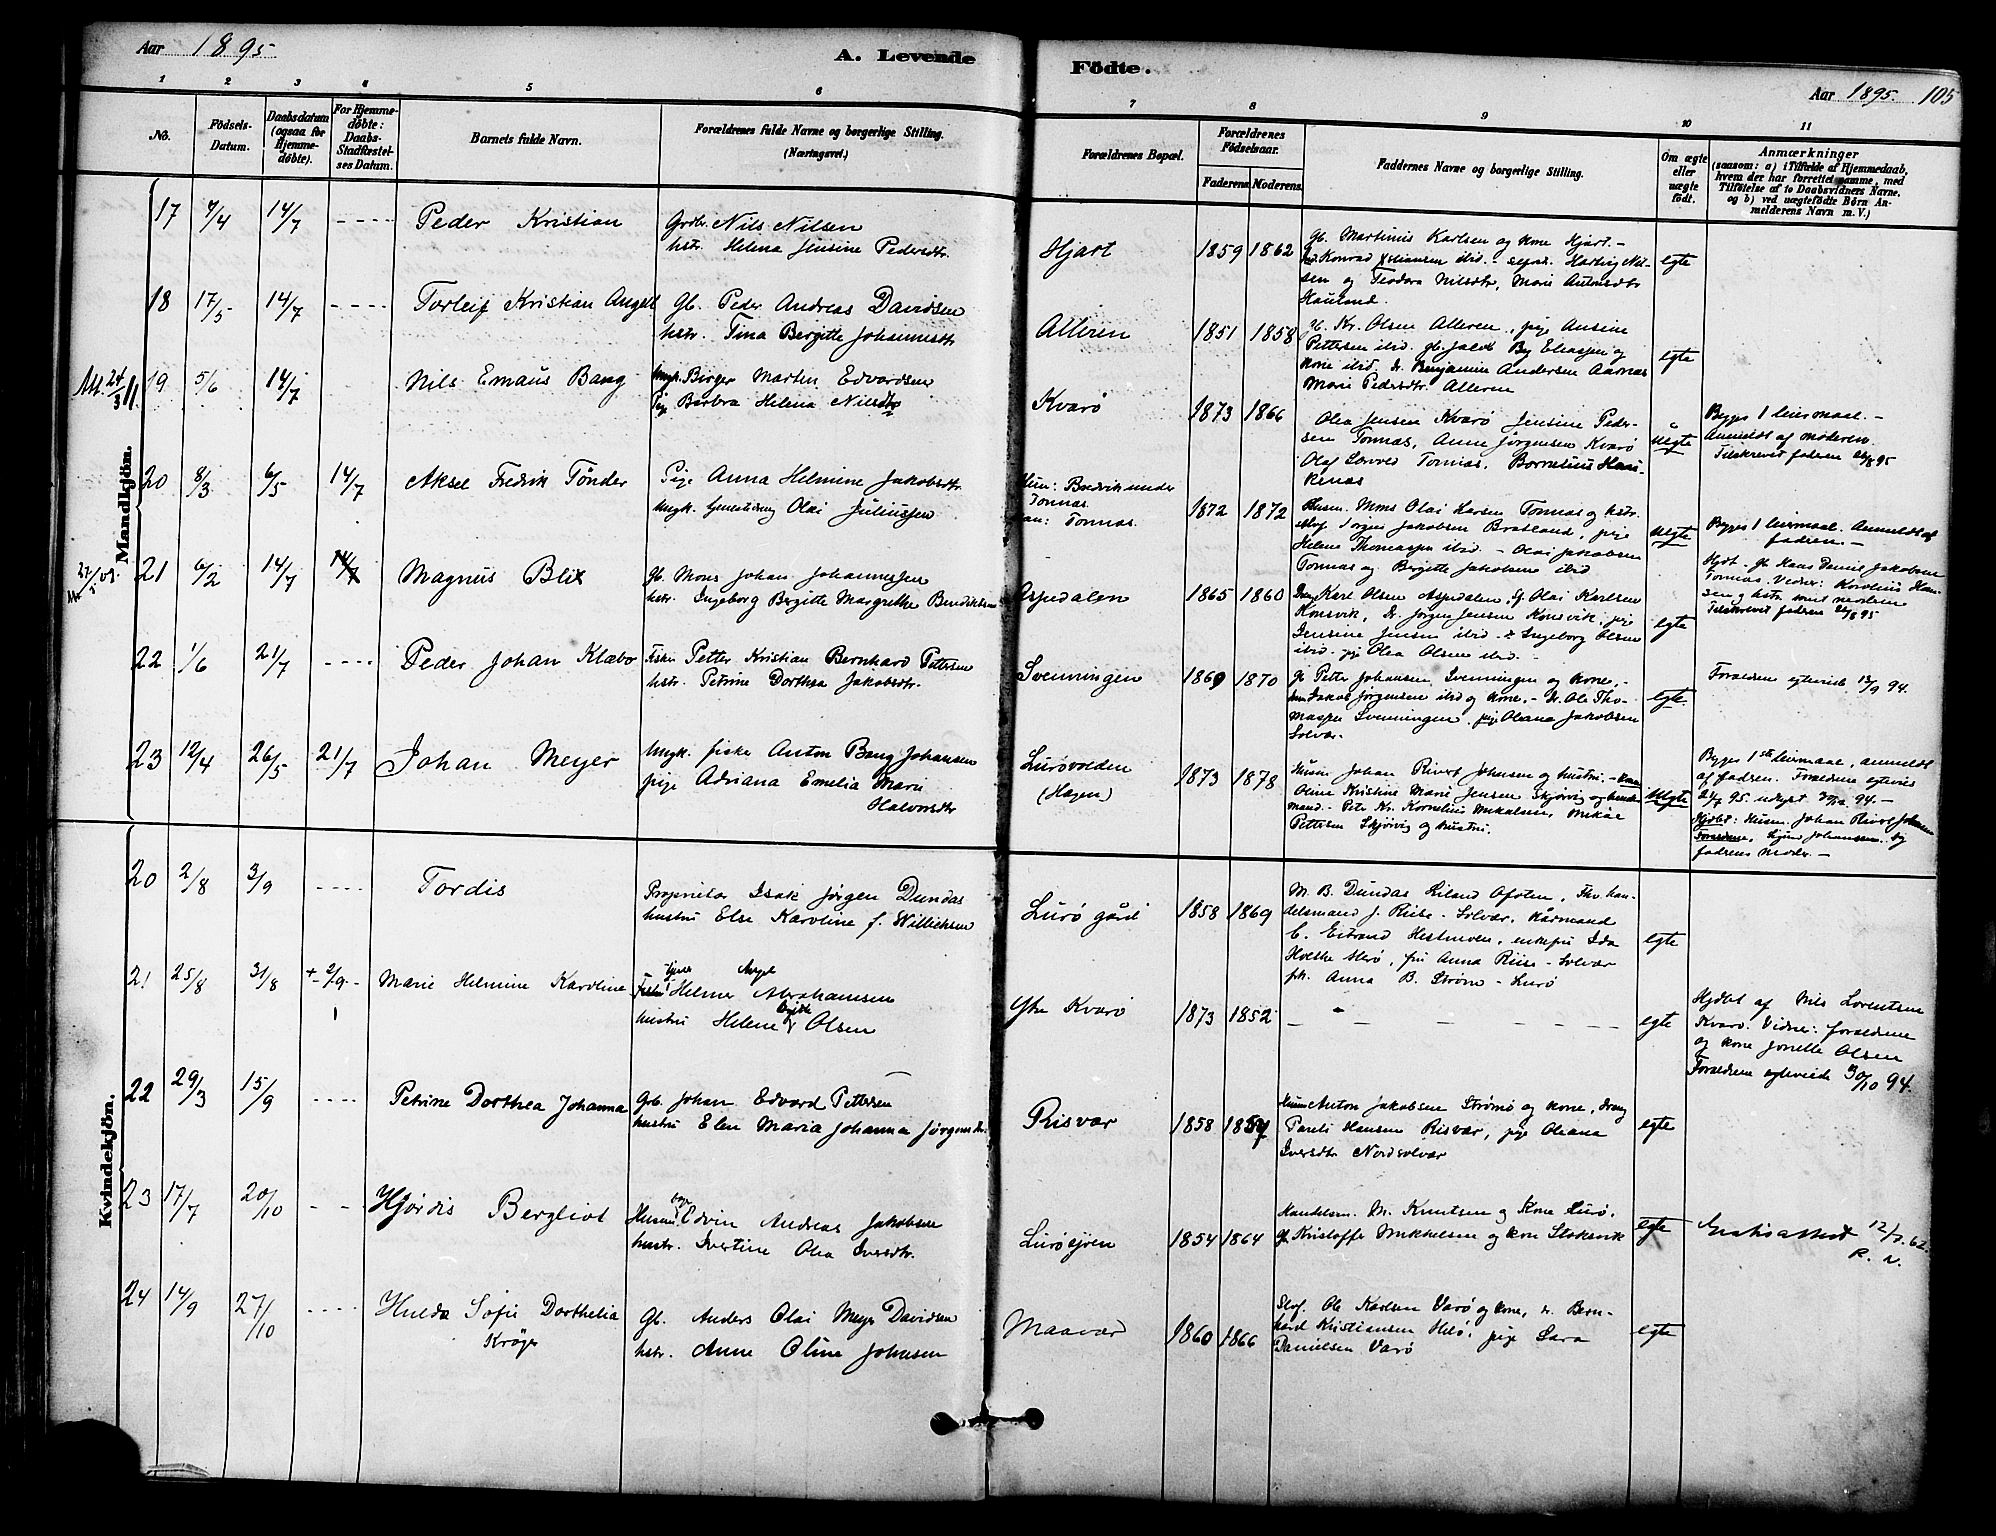 Aar 1895
A. Levende Födte.
Aar 1895. 105
1 2 3 4 5 6 7 8 9 10 11
No.
Födsels-
Datum.
Daabsdatum
(ogsaa for
Hjemme-
døbte).
For Hjemme-
døbte:
Daabs-
Stadfæstel-
ses Datum.
Barnets fulde Navn.
Forældrenes fulde Navne og borgerlige Stilling.
(Næringsvei.)
Forældrenes Bopæl.
Forældrenes
Födselsaar.
Faderens. Moderens.
Faddernes Navne og borgerlige Stilling.
Om ægte
eller
uægte
født.
Anmærkninger
(saasom: a) i Tilfælde af Hjemmedaab,
hvem der har forrettet samme, med
Tilføielse af to Daabsvidners Navne,
og b) ved uægtefødte Børn An-
melderens Navn m. V.)
Mandkjön.
17 7/4 14/7 - - - - Peder Kristian
Grdbr. Nils Nilsen
hstr. Helena Jensine Pedersdtr.
Hjart 1859 1862
Gb. Martinus Karlsen og kone Hjart. -
Konrad Kstiansen ibid. - Hartvig Nil-
sen og Teodora Nilsdtr, Marie Antonsdtr
Hauland.
egte
18 17/5 14/7 - - - - Torleif Kristian Angell
Gb. Peder Andreas Davidsen
hstr. Tina Bergitte Johannesdtr
Alleren 1851 1858
gb. Kr. Olsen Alleren, pige Ansine
Pettersen ibid. gb. Jakob By Eliassen og
kone ibid. dr. Benjamin Andersen Aarnæs
Marie Pedersdtr. Alleren
egte
19 5/6 14/7 Nils Emaus Bang
Ungk. Birger Martin Edvardsen
Pige Barbra Helena Nilsdtr
Kvarø 1873 1866
Olea Jensen Kvarø Jensine Peder-
sen Tonnæs, Anne Jørgensen Kvarø
Olaf Tonnæs, Bornelius Haas-
kenæs
uegte
Begges 1 leiermaal. -
Anmeldt af moderen.
Tilskrevet fadren 26/8 95
20 8/3 6/5 14/7 Aksel Fredrik Tönder
Pige Anna Helmine Jakobsdtr.
Ungk. Olai Juliussen
Hun: Bredvik under
Tonnæs
Han: Tonnæs.
1872 1872
Husm. Mons Olai Larsen Tonnæs og hstr.
Jørgen Jakobsen Bratland, pige
Helene Thomassen ibid. - Olai Jakobsen
Tonnæs og Bergitte Jakobsen ibid
uegte
Begges 1 leiermaal. Anmeldt af
fadren. -
Hjdt. gb. Hans Daniel Jakobsen
Tonnæs. Vidner: Kornelius Han-
sen og hstr. samt moderen
Tilskrevet fadren 26/8 95
21 6/2 14/7 14/7 Magnus Blix
Gb. Mons Johan Johannessen
hstr. Ingeborg Bergitte Margrethe Bendiktsen
Aspdalen 1865 1860
Karl Olsen Aspdalen, G. Olai Karlsen
Konsvik, Dr. Jørgen Jensen Konsvik, pige
Jensine Jensen ibid - Ingeborg Olsen
ibid. pige Olea Olsen ibid. -
egte
22 1/6 21/7 - - - - Peder Johan Klæbo
Fisker Petter Kristian Bernhard Pettersen
hstr. Petrine Dorthea Jakobsdtr.
Svenningen 1869 1870
gb Petter Johansen, Svenningen og kone, -
Jakob Jørgensen ibid og kone. - Dr. Ole Tho-
massen Svenningen, pige Oleana Jakobsen
Solvær.
egte
Forældrene egteviet 13/9 94.
23 12/4 26/5 21/7 Johan Meyer
Ungk. fisker Anton Bang Johansen
pige Adriana Emelia Marie
Halvorsdtr
Lurøvolden
(Hagen)
1873 1878
Husm. Johan Rivert Johnsen og hustru. -
Oline Kristine Marie Jensen Skjervig og
mand. - Peter Kr. Kornelius Mikalsen, Mikal
Pettersen Skjervig og hustru.
uegte
Begges 1ste leiermaal, anmeldt
af fadren. Forældrene egteviet
21/7 95. 94. -
Hjdbt: Husm. Johan Rivert Johnsen
Sigrid Johansen.
fadrens moder. -
Kvindekjön.
20 2/8 3/9 - - - - Tordis
Proprietær Isak Jørgen Dundas
hustru Else Karoline f. Willichsen
Lurø gård 1858 1869
M. B. Dundas Riland Ofoten, Fhv. han-
delsmand J. Riise - Solvær, Kårmand
C. Estrand Hestmoen, enkefru Ida
Holthe Hserø, fru Anna Riise - Solvær
frk. Anna B. Strøm - Lurø
egte
21 25/8 31/8 + 2/9 - Marie Helmine Karoline
Angel
Helmer Abrahamsen
hustru Helene Olsen
Ytre Kvarø 1873 1852
egte
Hjdbt af Nils Lorentsen
Kvarø. Vidner: forældrene
og kone Jonette Olsen
Forældrene egteviede 30/10 94.
22 29/3 15/9 - - - - Petrine Dorthea Johanna
Grb. Johan Edvard Pettersen
hustru Elen Maria Johanna Jørgensdtr.
Risvær 1858 1857
Husm Anton Jakobsen Strømø og kone, dreng
Pareli Hansen Risvær, pige Oleana
Iversdtr Nordsolvær
egte
23 17/7 20/10 - - Hjørdis Bergliot
Husm. Edvin Andreas Jakobsen
hustr. Ivertine Olea Iversdtr.
Lurøsjøen 1854 1864
Handelsm. M. Knutsen og Kone Lurø.
G. Kristoffer Mikkelsen og kone Stoksvik
egte
Gratisattest 12/3. 62.
R. N.
24 14/9 27/10 - - - - Hulda Sofie Dorthelia
Krøger
Gb. Anders Olai Meyer Davidsen
hstr. Anne Oline Johnsen
Maavær 1860 1866
Ole Karlsen Varø og kone, dr. Bern-
hard Kristiansen Hserø, pige Sara
Danielsen Varø
egte